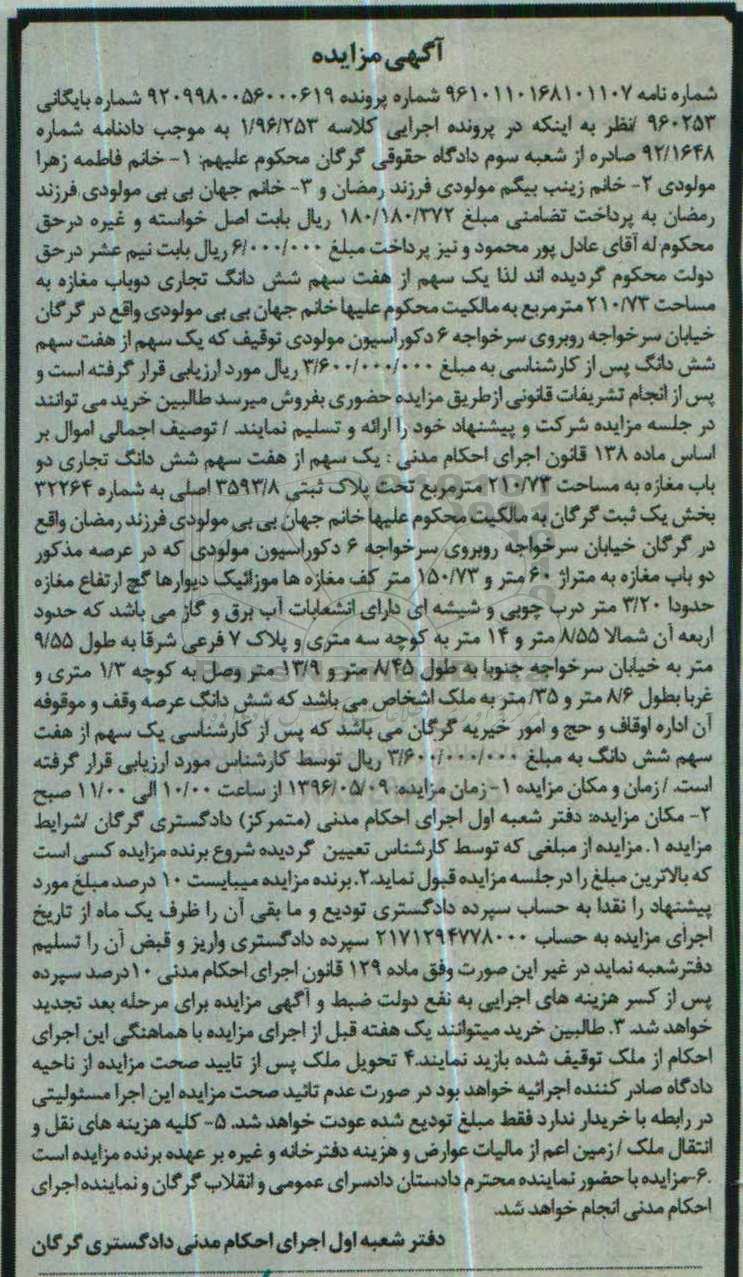 آگهی مزایده
شماره نامه ۹۶۱۰۱۱۰۱۶۸۱۰۱۱۰۷ شماره پرونده ۹۲۰۹۹۸۰۰۵۶۰۰۰۶۱۹ شماره بایگانی
۹۶۰۲۵۳ /نظر به اینکه در پرونده اجرایی کلاسه ۱/۹۶/۲۵۳ به موجب دادنامه شماره
۹۲/۱۶۴۸ صادره از شعبه سوم دادگاه حقوقی گرگان محکوم علیهم: ۱- خانم فاطمه زهرا
مولودی ۲- خانم زینب بیگم مولودی فرزند رمضان و ۳- خانم جهان بی بی مولودی فرزند
رمضان به پرداخت تضامنی مبلغ ۱۸۰/۱۸۰/۳۷۲ ریال بابت اصل خواسته و غیره درحق
محکوم له آقای عادل پور محمود و نیز پرداخت مبلغ ۶/۰۰۰/۰۰۰ ریال بابت نیم عشر درحق
دولت محکوم گردیده اند لذا یک سهم از هفت سهم شش دانگ تجاری دوباب مغازه به
مساحت ۲۱۰/۷۳ مترمربع به مالکیت محکوم علیها خانم جهان بی بی مولودی واقع در گرگان
خیابان سرخواجه روبروی سرخواجه ۶ دکوراسیون مولودی توقیف که یک سهم از هفت سهم
شش دانگ پس از کارشناسی به مبلغ ۳/۶۰۰/۰۰۰/۰۰۰ ریال مورد ارزیابی قرار گرفته است و
پس از انجام تشریفات قانونی ازطریق مزایده حضوری بفروش میرسد طالبین خرید می توانند
در جلسه مزایده شرکت و پیشنهاد خود را ارائه و تسلیم نمایند. / توصیف اجمالی اموال بر
اساس ماده ۱۳۸ قانون اجرای احکام مدنی : یک سهم از هفت سهم شش دانگ تجاری دو
باب مغازه به مساحت ۲۱۰/۷۳ مترمربع تحت پلاک ثبتی ۳۵۹۳/۸ اصلی به شماره ۳۲۲۶۴
بخش یک ثبت گرگان به مالکیت محکوم علیها خانم جهان بی بی مولودی فرزند رمضان واقع
در گرگان خیابان سرخواجه روبروی سرخواجه ۶ دکوراسیون مولودی که در عرصه مذکور
دو باب مغازه به متراژ ۶۰ متر و ۱۵۰/۷۳ متر کف مغازه ها موزائیک دیوارها گچ ارتفاع مغازه
حدودا ۳/۲۰ متر درب چوبی و شیشه ای دارای انشعابات آب برق و گاز می باشد که حدود
اربعه آن شمالا ۸/۵۵ متر و ۱۴ متر به کوچه سه متری و پلاک ۷ فرعی شرقا به طول ۹/۵۵
متر به خیابان سرخواجه جنوبا به طول ۸/۴۵ متر و ۱۳/۹ متر وصل به کوچه ۱/۳ متری و
غربا بطول ۸/۶ متر و ۳۵/ متر به ملک اشخاص می باشد که شش دانگ عرصه وقف و موقوفه
آن اداره اوقاف و حج و امور خیریه گرگان می باشد که پس از کارشناسی یک سهم از هفت
سهم شش دانگ به مبلغ ۳/۶۰۰/۰۰۰/۰۰۰ ریال توسط کارشناس مورد ارزیابی قرار گرفته
است. / زمان و مکان مزایده ۱- زمان مزایده: ۱۳۹۶/۰۵/۰۹ از ساعت ۱۰/۰۰ الی ۱۱/۰۰ صبح
۲- مکان مزایده: دفتر شعبه اول اجرای احکام مدنی (متمرکز) دادگستری گرگان /شرایط
مزایده ۱. مزایده از مبلغی که توسط کارشناس تعیین گردیده شروع برنده مزایده کسی است
که بالاترین مبلغ را درجلسه مزایده قبول نماید.۲. برنده مزایده میبایست ۱۰ درصد مبلغ مورد
پیشنهاد را نقدا به حساب سپرده دادگستری تودیع و ما بقی آن را ظرف یک ماه از تاریخ
اجرای مزایده به حساب ۲۱۷۱۲۹۴۷۷۸۰۰۰ سپرده دادگستری واریز و قبض آن را تسلیم
دفترشعبه نماید در غیر این صورت وفق ماده ۱۲۹ قانون اجرای احکام مدنی ۱۰درصد سپرده
پس از کسر هزینه های اجرایی به نفع دولت ضبط و آگهی مزایده برای مرحله بعد تجدید
خواهد شد. ۳. طالبین خرید میتوانند یک هفته قبل از اجرای مزایده با هماهنگی این اجرای
احکام از ملک توقیف شده بازید نمایند.۴ تحویل ملک پس از تایید صحت مزایده از ناحیه
دادگاه صادر کننده اجرائیه خواهد بود در صورت عدم تائید صحت مزایده این اجرا مسئولیتی
در رابطه با خریدار ندارد فقط مبلغ تودیع شده عودت خواهد شد. ۵- کلیه هزینه های نقل و
انتقال ملک / زمین اعم از مالیات عوارض و هزینه دفترخانه و غیره بر عهده برنده مزایده است
.۶-مزایده با حضور نماینده محترم دادستان دادسرای عمومی و انقلاب گرگان و نماینده اجرای
احکام مدنی انجام خواهد شد.
دفتر شعبه اول اجرای احکام مدنی دادگستری گرگان